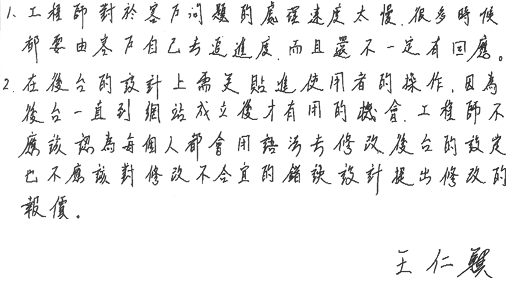 1. 工程師對於客戶問題的處理速度太慢,很多時候
都要由客戶自己去追進度,而且還不一定有回應。
2. 在後台的設計上需更貼進使用者的操作,因為
後台一直到網站成立後才有用的機會,工程師不
應該認為每個人都會用語法去修改後台的設定
也不應該對修改不合宜的錯誤設計提出修改的
報價。
王仁